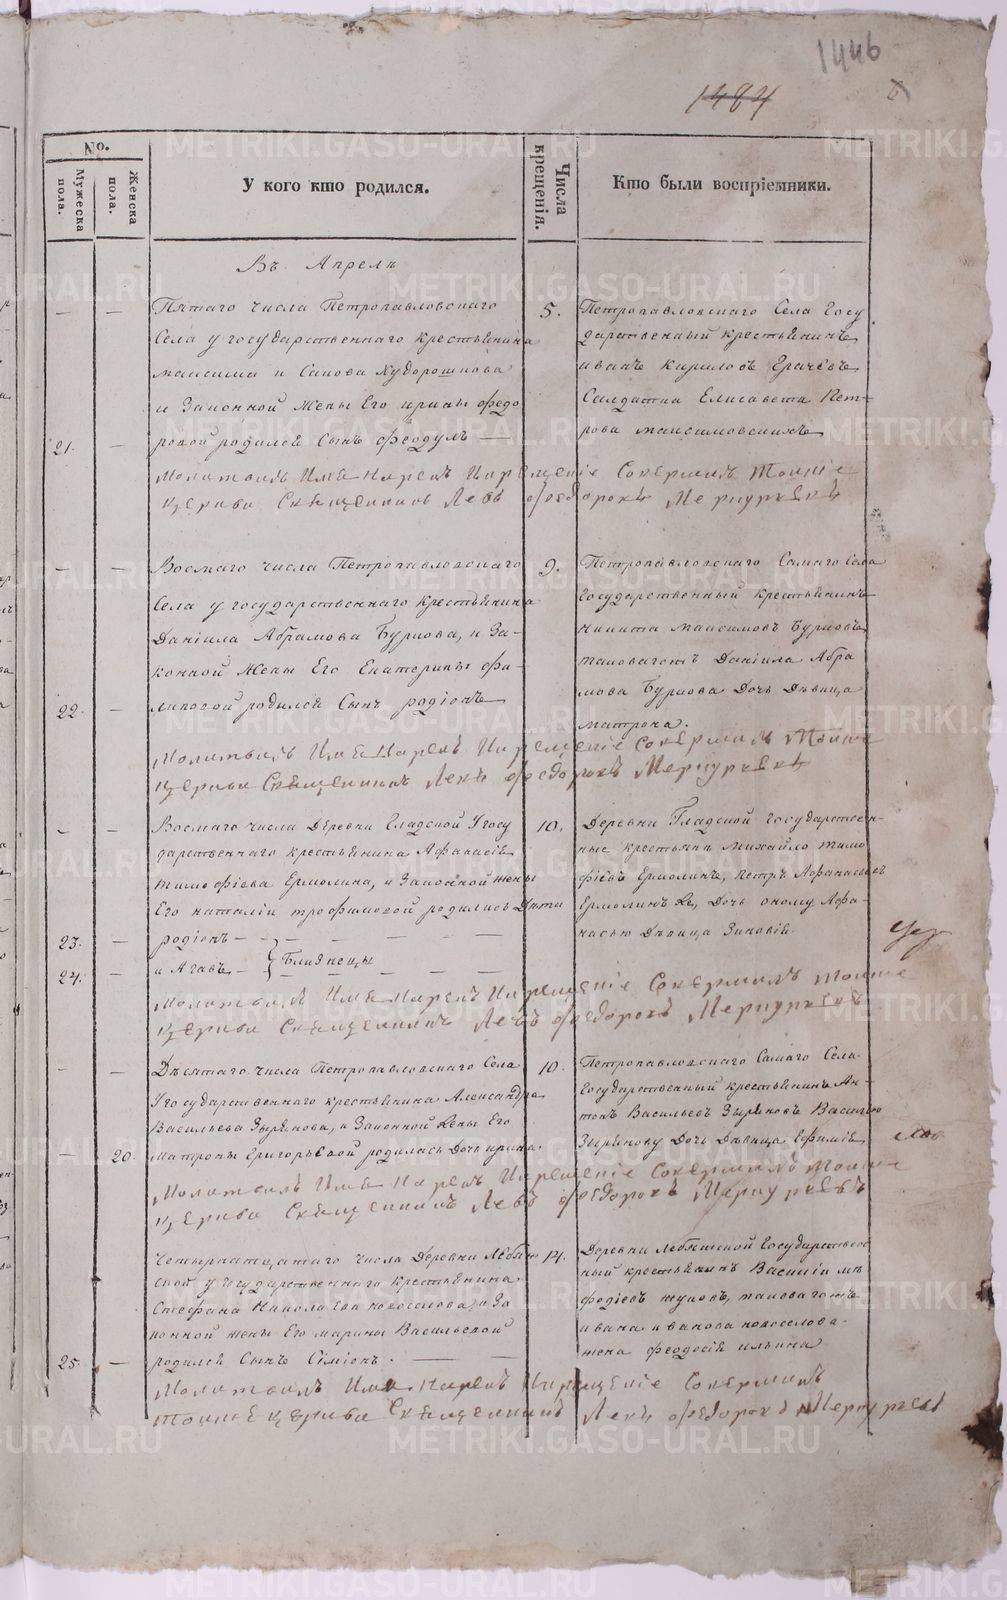 1446
1484
№.
Мужеска пола.
Женска пола.
У кого кто родился.
Числа крещенія.
Кто были воспріемники.
Въ Апрелѣ
Пятаго числа Петропавловскаго
Села у государственнаго крестьянина
Максима
и Законной жены Его ирины федо
ровой родился Сынъ феодулъ —
21. —
5.
Петропавловскаго Села Госу
дарственный крестьянинъ
иванъ Кириловъ Грачевъ
Салдатка Елисавета Пет-
рова
Молитвилъ Имѣ Нарекъ И крещеніе Совершилъ Тоійже
церкви Священникъ Левъ Феодоровъ Меркурьевъ
Восмаго числа Петропавловскаго
Села у государственнаго крестьянина
Даніила Абрамова Буркова, и За-
конной жены Его Екатерины фи-
липовой родился Сынъ родіонъ
22. —
9.
Петропавловскаго Самаго Села
Государственный крестьянинъ
никита максимовъ Бурковъ
таковагожъ Даніила Абра
мова Буркова Дочь Дѣвица
матрона.
Молитвилъ Имѣ Нарекъ И крещеніе Совершилъ Тоійже
церкви Священникъ Левъ Феодоровъ Меркурьевъ
Восмаго числа Деревни Гладской У госу
дарственнаго крестьянина Афанасія
тимофіева Ермолина, и Законной жены
Его наталіи трофимовой родились Дѣти
23. — родіонъ —
24. — и Агавъ — Близнецы
10.
Деревни Гладской государствен-
ные крестьяни Михайло тимо
фіевъ Ермолинъ, петръ Афанасьевъ
Ермолинъ же, Дочь оному Афа-
насью Дѣвица Зиновія
Молитвилъ Имѣ Нарекъ И крещеніе Совершилъ тоійже
церкви Священникъ Левъ Феодоровъ Меркурьевъ
Десятаго числа Петропавловскаго Села
У государственнаго крестьянина Александра
Васильева Зырянова, и Законной жены Его
— 20. матроны Григорьевой родилась Дочь ирина.
10.
Петропавловскаго Самаго Села
Государственный крестьянинъ Ан-
тонъ Васильевъ Зыряновъ Василью
Зырянову Дочь Дѣвица Ефимія
Молитвилъ Имѣ Нарекъ И крещеніе Совершилъ тоійже
церкви Священникъ Левъ Феодоровъ Меркурьевъ
Четырнатцатаго числа Деревни Лебяж
ской у государственнаго крестьянина
Стефана Николаева новоселова, и За
конной жены Его марины Васильевой
25. — родился Сынъ Сіміонъ. —
14.
Деревни лебяжской Государствен
ный крестьянинъ Василій ме
фодіевъ жуковъ, таковагожъ
ивана иванова новоселова
жена феодосія ильина
Молитвилъ Имя Нарекъ И крещеніе Совершилъ
тоійже церкви Священникъ Левъ Феодоровъ Меркурьевъ